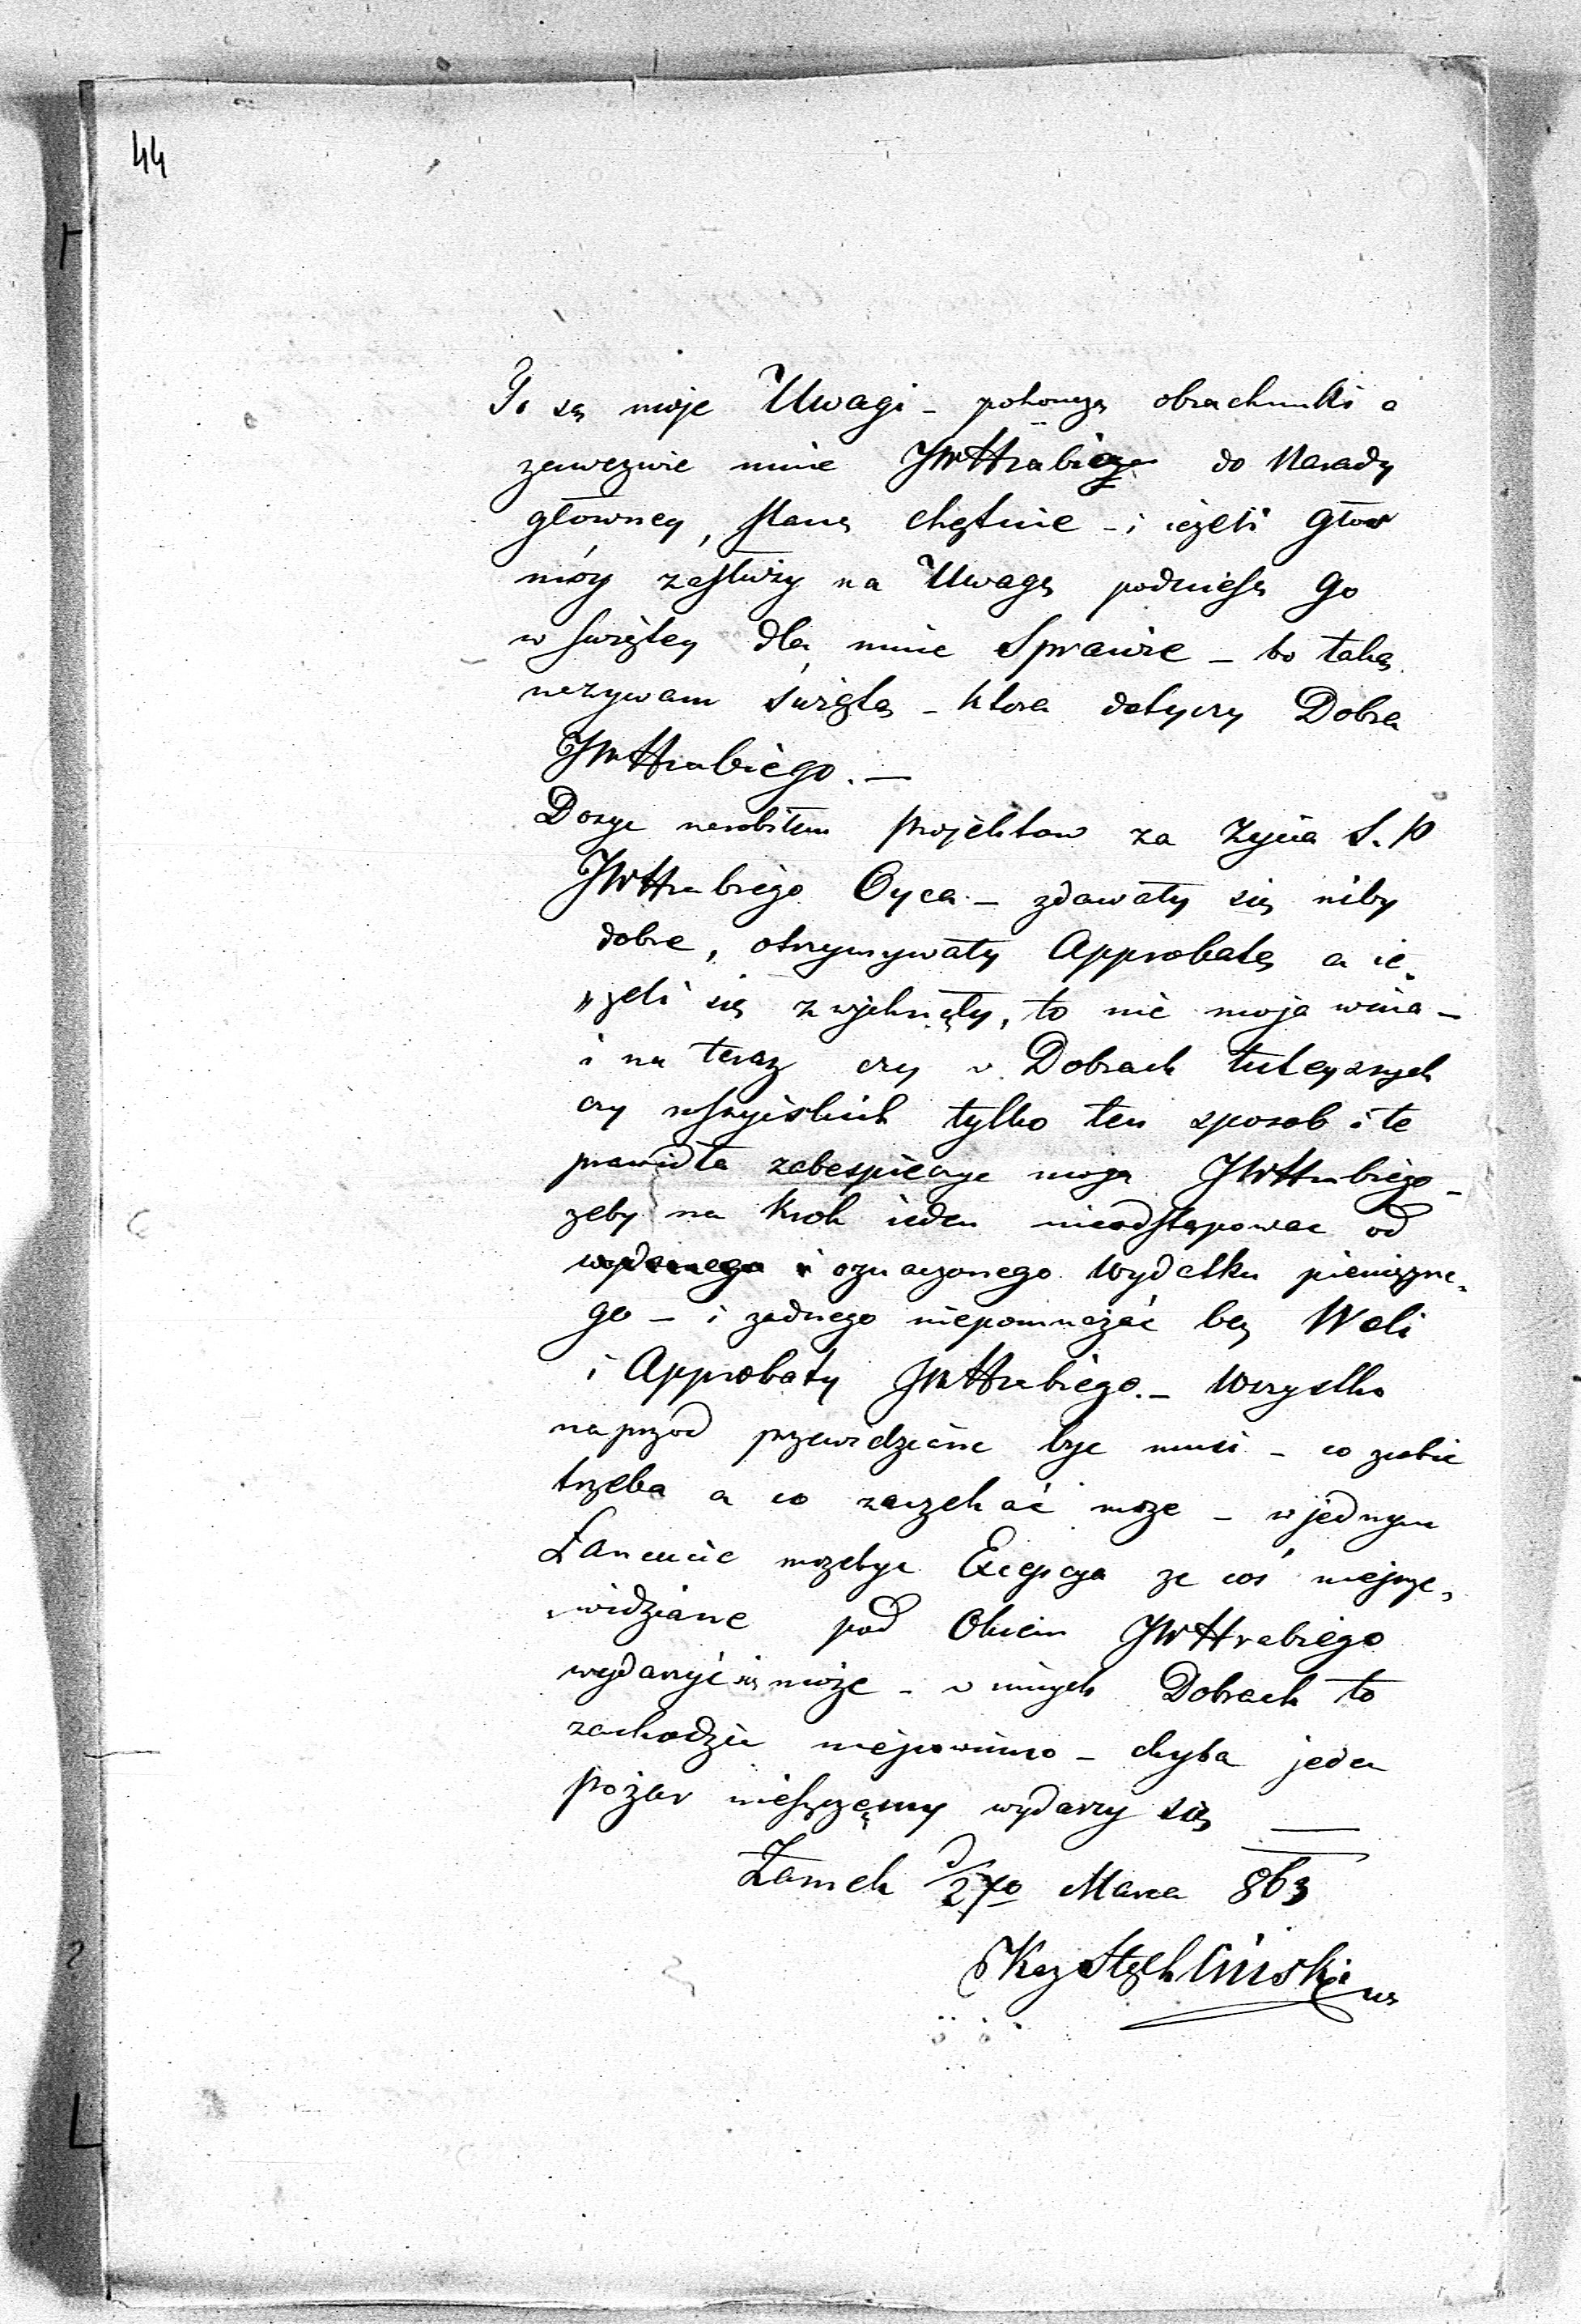 44
To są moje Uwagi - pokonczą obrachunki a
zawezwie mnie JWHrabiego do Narady
głowney, stanę chętnie - i ieżeli głos
móy zasłuży na Uwagę podniosę Go
w swiętey dla mnie Sprawie - bo taką
nazywam świętą - ktora dotyczy Dobra
JWHrabiego. -
Dosyc narobiłem Projektow za Zycia S. P
JWHrabiego Oyca - zdawały się niby
dobre, otrzymywały Approbatę a ie„
„zeli się zwichnęły, to nie moja wina -
i na teraz czy w Dobrach tuteyszych
czy rossyiskich tylko ten sposob i te
prawidła zabespieczyc mogą JWHrabiego -
zeby na krok ieden nieodstępowac od
oznaczonego Wydatku pieniężne„
go - i zadnego niepomnażać bez Woli
i Approbaty JWHrabiego. - Wszystko
naprzod przewidziane byc musi - co zrobic
trzeba a co zaczekać moze - w jednym
Łancucie mozebyc Excepcya ze coś nieprze„
„widziane pod Okiem JWHrabiego
wydarzyć się może - w innych Dobrach to
zachodzic niepowinno - chyba jeden
pożar nieszczęsny wydarzy się
Zamek d/27go Marca 863